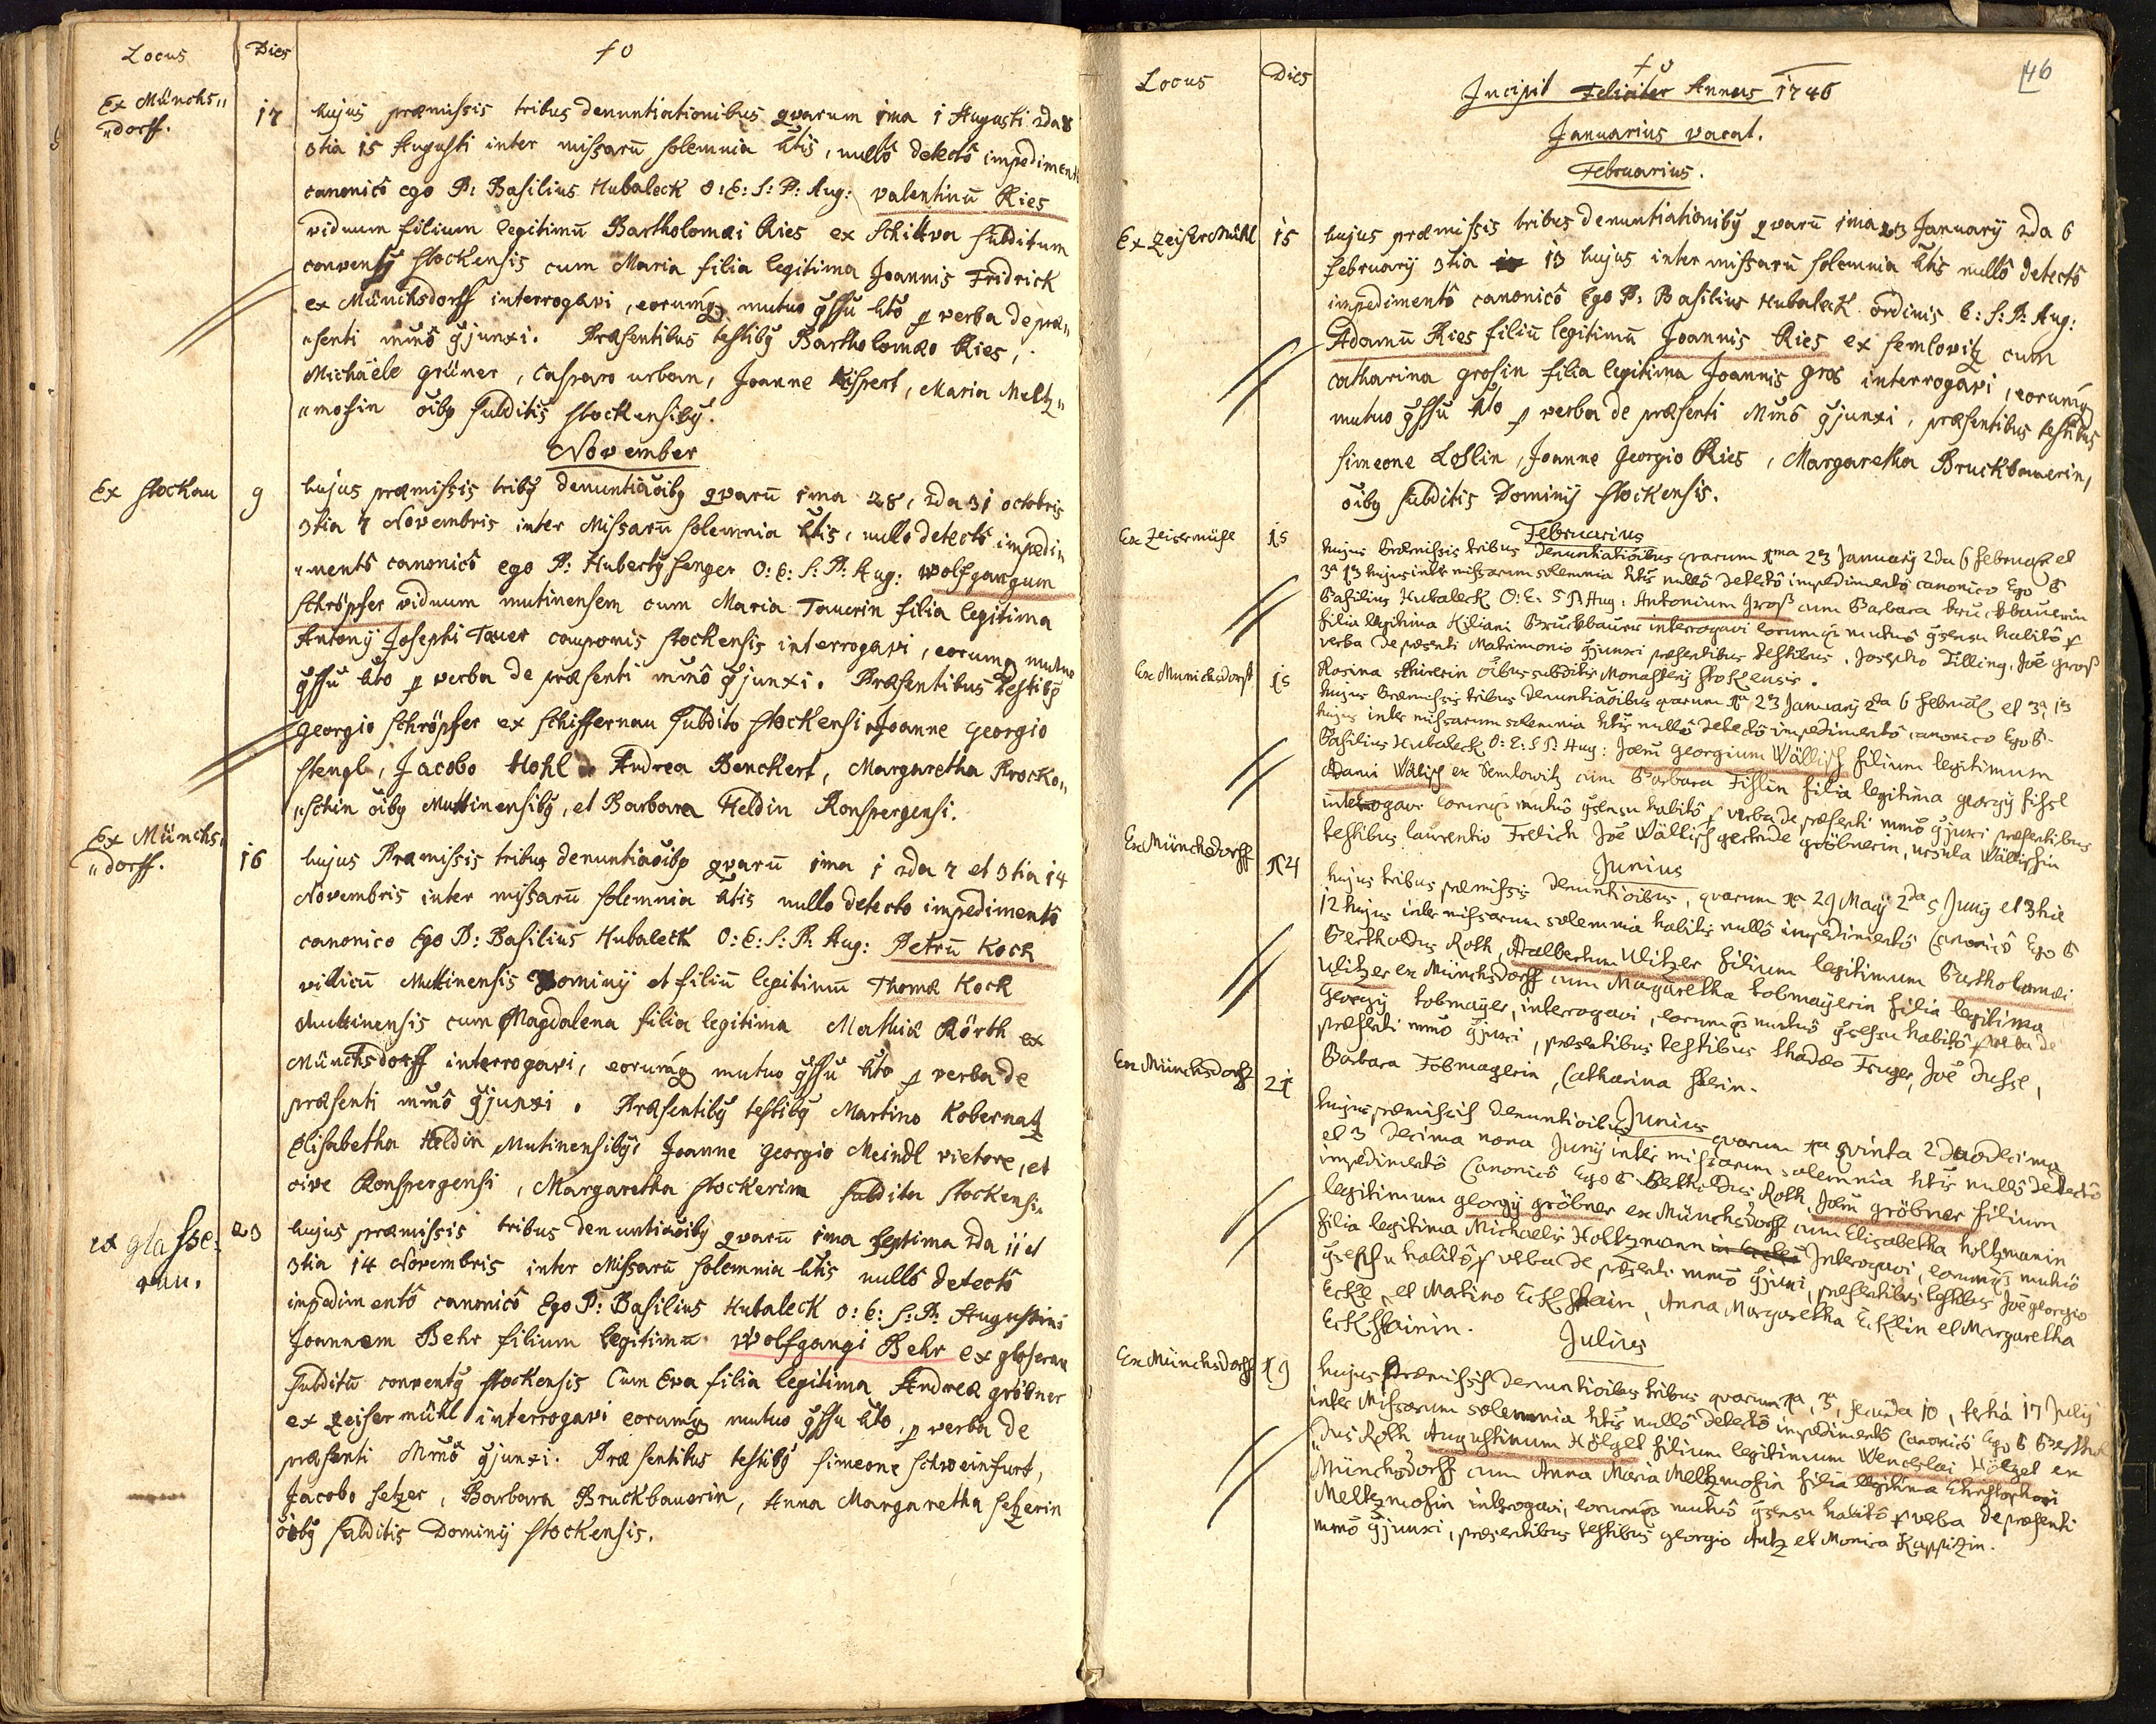 Locus Dies
Ex Münchs„
„dorff. 17 hujus præmissis tribus denuntiationibus qvarum 1ma 1 Augusti 2da 8
3tia 15 Augusti inter missarū solemnia htis, nullô detectô impediment
canonicô ego P: Basilius Hubaleck O: E: S: P: Aug: Valentinū Ries
viduum filium legitimū Bartholomæi Ries ex Schittva subditum
Stockensis cum Maria filia legitima Joannis Fridrick
ex Münchsdorff interrogavi, eorumq mutuo hto p verba de præ„
„senti junxi. Præsentibus testibg Bartholomæo Ries,
Michäele Grüner, Casparo urban, Joanne Maria Meltz„
„mosin oibg subditis Stockensibg.
November
Ex Stockau 9 hujus præmissis tribg qvarū 1ma 28, 2da 31 octobris
3tia 7 Novembris inter Missarū solemnia htis, nullo detectô impedi„
„mentô canonicô ego P: Hubertg Senger O: E: S: P: Aug: Wolfgangum
Schröpfer viduum mutinensem cum Maria Tauerin filia legitima
Antonij Josephi Tauer Stockensis interrogavi, eorumq mutuo
hto p verba de præsenti junxi. Præsentibus Testibg
Georgio Schröpfer ex Schiffernau subdito Stockensi Joanne Georgio
Stengl, Jacobo Hohl Andrea Benckert, Margaretha Procko„
„schin oibg Muttinensibg, et Barbara Heldin Ronspergensi.
Ex Münchs„
„dorff. 16 hujus Præmissis tribus qvarū 1ma 1 2da 7 et 3tia 14
Novembris inter missarū solemnia htis nullo detecto impedimentô
canonico Ego P: Basilius Hubaleck O: E: S: P: Aug: Petrū Kock
villicū Muttinensis Dominij et filiū legitimū Thomæ Kock
Muttinensis cum Magdalena filia legitima Mathiæ Rörth ex
Münchsdorff interrogavi, eorumq mutuo hto p verba de
præsenti junxi. Præsentibg testibg Martino Kobernatz
Elisabetha Heldin Mutinensibg, Joanne Georgio Meindl vietore, et
cive Ronspergensi, Margaretha Stockerin subdita Stockensi„
ex glasse„
rau. 23 hujus præmissis tribus qvarū 1ma septima 2da 11 et
3tia 14 Novembris inter Missarū solemnia htis nullô detectô
impedimentô canonicô Ego P: Basilius Hubaleck O: E: S: P: Augustini
Joannem Behr filium legitimū Wolfgangi Behr ex glaserau
subditū conventg Stockensis Cum Eva filia legitima Andreæ gröbner
ex Zeisermühl interrogavi eorumq mutuo hto, p verba de
præsenti junxi. Præsentibus testibg Simeone Schweinfurt,
Jacobo Setzer, Barbara Bruckbauerin, Anna Margaretha Setzerin
oibg subditis Dominij Stockensis.
Locus Dies 46
Incipit Feliciter Annus 1746
Januarius vacat.
Februarius.
Ex Zeisermühl 15 hujus præmissis tribus denuntiationibg qvarū 1ma 23 January 2da 6
february 3tia 13 hujus inter missarū solemnia htis nullô detectô
impedimentô canonicô Ego P: Basilius Hubaleck ordinis E: S: P: Aug:
Adamū Ries filiū legitimū Joannis Ries ex Semlovitz cum
catharina Grosin filia legitima Joannis Gros interrogavi, eorumq
mutuo hto p verba de præsenti junxi, præsentibus testibus
Simeone Loslin, Joanne Georgio Ries, Margaretha Bruckbauerin,
oibg subditis Dominij Stockensis.
Februarius
Ex Zeisermühl 15 hujus Præmissis tribus Denuntiatioibus qvarum 1ma 23 January 2da 6 Februarij et
3a 13 hujus inter missarum solemnia htis nullô detectô impedimentô canonico Ego P
Basilius Hubaleck O: E: S P: Aug: Antonium Groß cum Barbara Bruckbauerin
filia legitima Kiliani Bruckbauer interrogavi eorumq mutuô habitô p
verba de præsenti Matrimonio junxi præsentibus testibus, Josepho Tilling, Joe groß
Rosina oibus subditis Monasterij Stockensis.
Ex Munichsdorff 15 hujus Præmissis tribus qvarum 1a 23 January 2da 6 et 3a 13
hujus inter missarum solemnia htis nullô detectô impedimentô canonico Ego P.
Basilius Hubaleck O: E: S P: Aug: Georgium Wällisch filium legitimum
Adami Wälisch ex Semlowitz cum Barbara Fislin filia legitima georgij fissl
interrogavi eorumq mutuô habitô p verba de præsenti junxi præsentibus
testibus laurentio Frelich Joe Wällisch gertrude gröbnerin, ursula Wällischin
Junius
Ex Münchsdorff 14 hujus tribus præmissis qvarum 1a 29 Maij 2da 5 Junij et 3tie
12 hujus inter missarum solemnia habitis nullô impedimentô Canonicô Ego P
Bertholdus Roth, Adalbertum Ulitzer filium legitimum Bartholomæi
Ulitzer ex Münchsdorff cum Margaretha tobmayerin filia legitima
Georgij tobmayer, interrogavi, eorumq mutuô habitô p verba de
præsenti junxi, præsentibus testibus thadæo Joe
Barbara Tobmayerin, Catharina
Junius
Ex Münchsdorff 21 hujus præmissis qvarum 1a qvinta 2 duodecima
et 3 decima nona Junij inter missarum solemnia htis nullô detectô
impedimentô Canonicô Ego P Bertholdus Roth gröbner filium
legitimum georgij gröbner ex Münchsdorff cum Elisabetha holtzmanin
filia legitima Michaelis Holtzmann Interogavi, eorumq mutuô
habitô p verba de præsenti junxi, præsentibus testibus Joe georgio
Eckl et Matino Eckstain, Anna Margaretha Ecklin et Margaretha
Eckstainin.
Julius
Ex Münchsdorff 19 hujus præmissis tribus qvarum 1a, 3, secunda 10, tertia 17 July
inter Missarum solemnia htis nullô detectô impedimentô Canonicô Ego P Berthol
dus Roth Augustinum Hölzel filium legitimum Wenceslai Hölzel ex
Münchsdorff cum Anna Maria Meltzmosin filia legitima Christophori
Meltzmosin interogavi, eorumq mutuô habitô p verba de præsenti
junxi, præsentibus testibus georgio Antz et Monica Kappitzin.